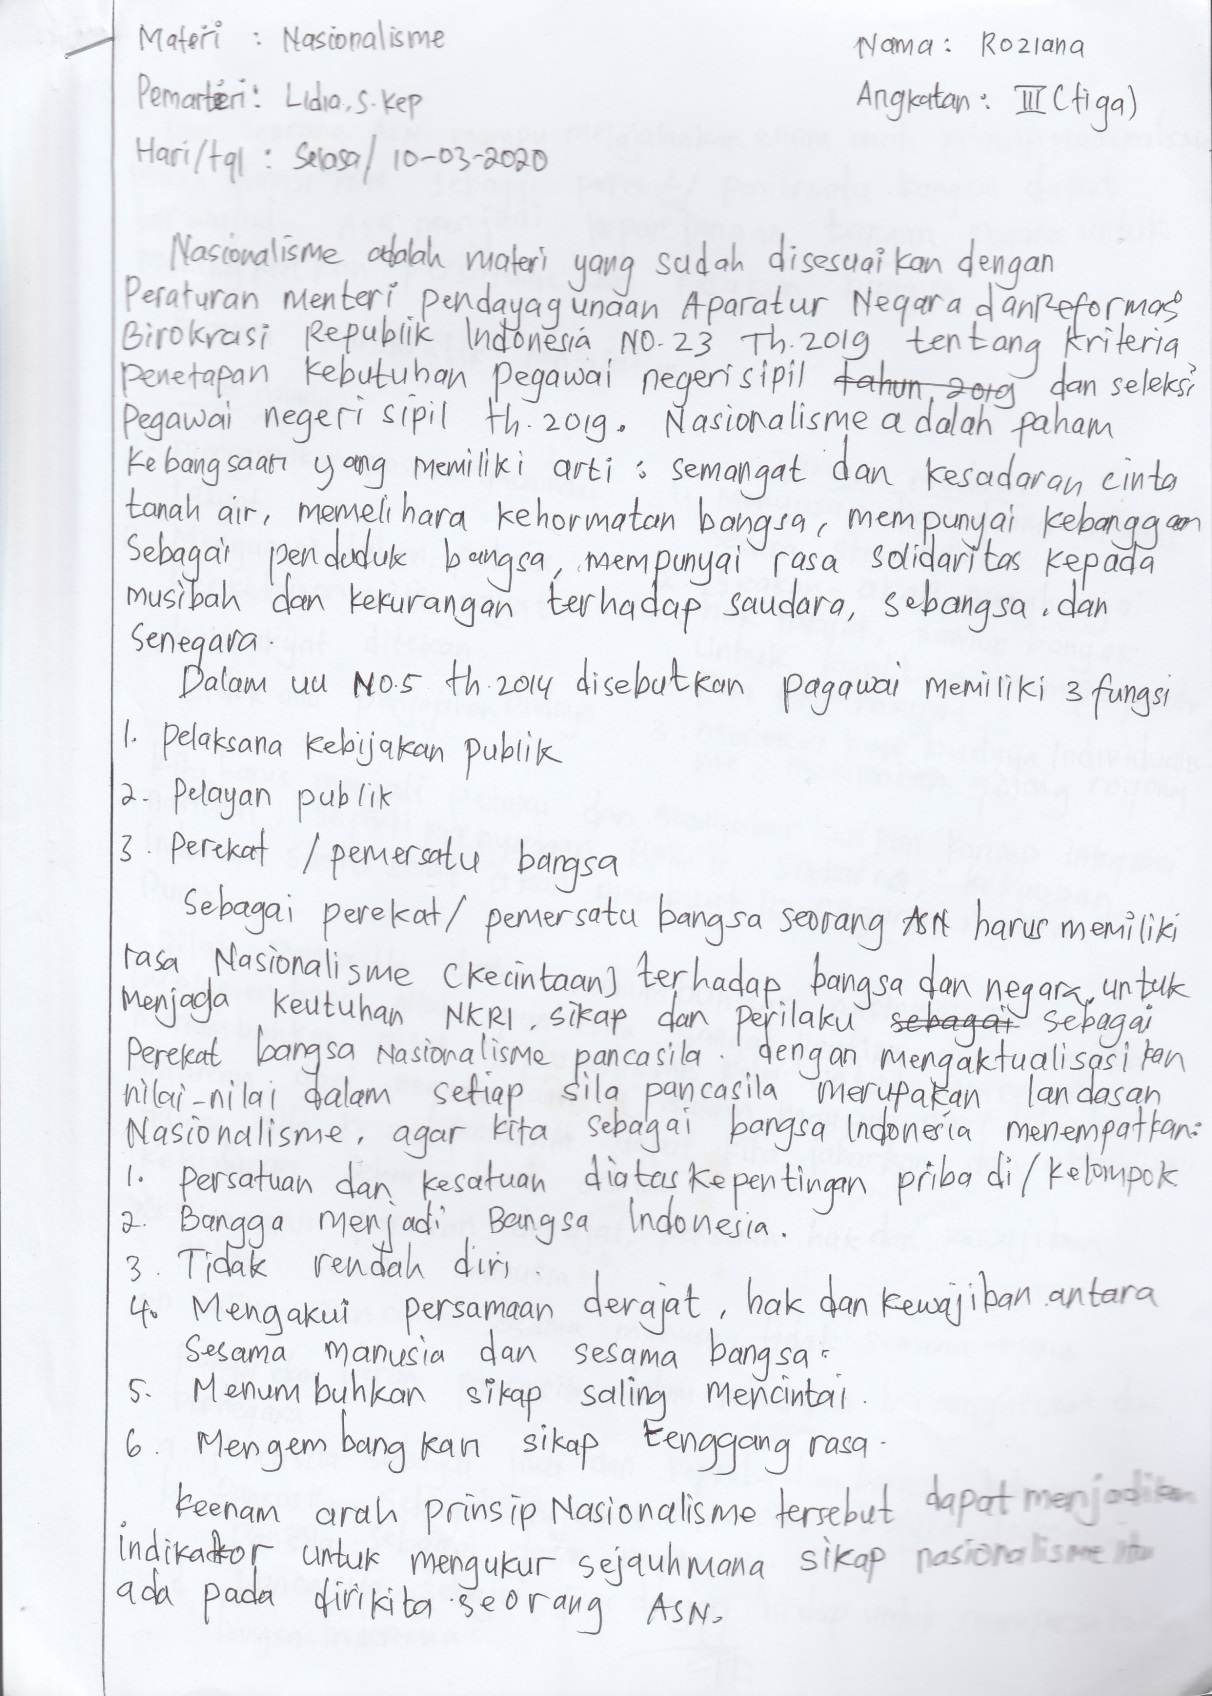 Materi : Nasionalisme
Nama : Roziana
Pemarteri : Lidia, S.Kep
Angkatan : III (tiga)
Hari/tgl : Selasa / 10-03-2020
Nasionalisme adalah materi yang sudah disesuaikan dengan
Peraturan menteri pendayagunaan Aparatur Negara dan Reformasi
Birokrasi Republik Indonesia NO. 23 Th. 2019 tentang kriteria
penetapan kebutuhan pegawai negeri sipil tahun 2019 dan seleksi
pegawai negeri sipil th. 2019. Nasionalisme adalah paham
kebangsaan yang memiliki arti : semangat dan kesadaran cinta
tanah air, memelihara kehormatan bangsa, mempunyai kebanggaan
sebagai penduduk bangsa, mempunyai rasa solidaritas kepada
musibah dan kekurangan terhadap saudara, sebangsa, dan
senegara.
Dalam uu NO.5 th.2014 disebutkan pagawai memiliki 3 fungsi
1. pelaksana kebijakan publik
2. Pelayan publik
3. Perekat / pemersatu bangsa
Sebagai perekat / pemersatu bangsa seorang ASN harus memiliki
rasa Nasionalisme (kecintaan) terhadap bangsa dan negara, untuk
menjaga keutuhan NKRI. sikap dan perilaku sebagai sebagai
perekat bangsa Nasionalisme pancasila. dengan mengaktualisasikan
nilai-nilai dalam setiap sila pancasila merupakan landasan
Nasionalisme, agar kita sebagai bangsa Indonesia menempatkan:
1. persatuan dan kesatuan diatas kepentingan pribadi / kelompok
2. Bangga menjadi Bangsa Indonesia.
3. Tidak rendah diri
4. Mengakui persamaan derajat, hak dan kewajiban antara
sesama manusia dan sesama bangsa.
5. Menumbuhkan sikap saling mencintai.
6. Mengembangkan sikap tenggang rasa.
keenam arah prinsip Nasionalisme tersebut dapat menjadikan
indikator untuk mengukur sejauhmana sikap nasionalisme itu
ada pada dirikita seorang ASN.